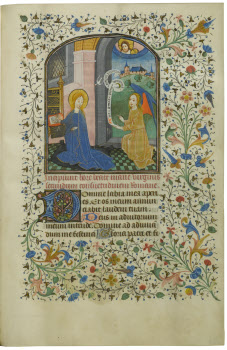 Incipiunt hore beate marie virginis
secundum consuetudinem romane
Domine labia mea aperi
es Et os meum annun
ciabit laudem tuam
Deus in adiutorium
meum intende Domine ad adiuvan
dum me festina Gloria patri et fi